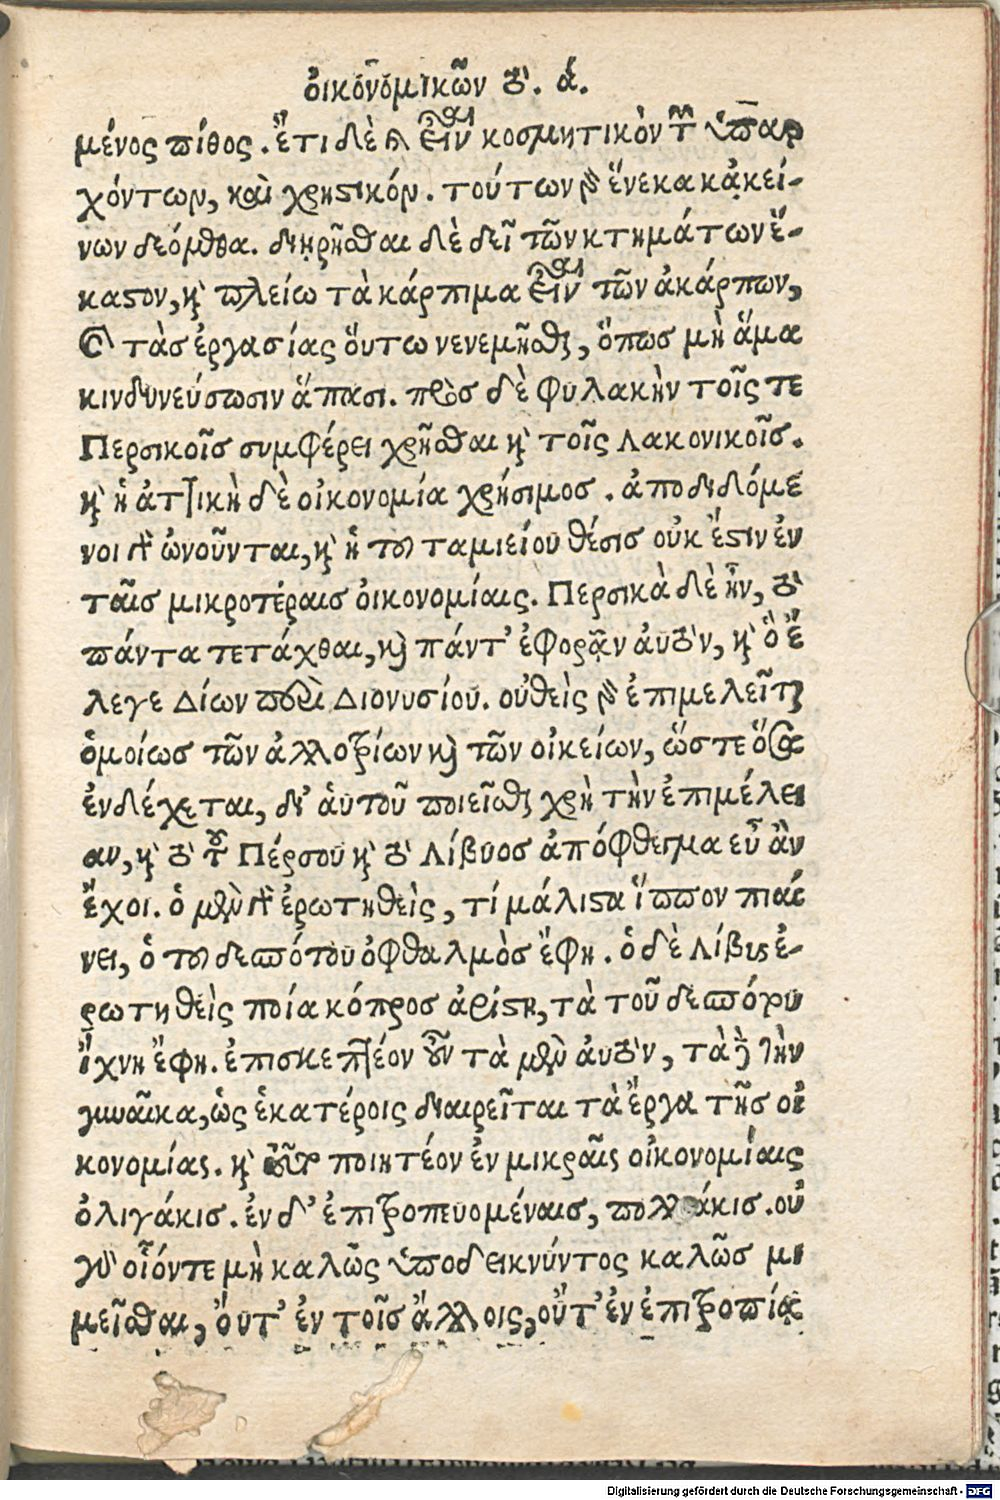 οἰκονομικῶν τὸ. ά.
μένος πίθος. ἔτι δὲ καὶ εἶναι κοσμητικὸν τῶν ὑπαρ
χόντων, καὶ χρηστικόν. τούτων γὰρ ἕνεκα κᾀκεί-
νων δεόμεθα. διῃρῆσθαι δὲ δεῖ τῶν κτημάτων ἕ-
καστον, καὶ πλείω τὰ κάρπιμα εἶναι τῶν ἀκάρπων,
καὶ τὰς ἐργασίας οὕτω νενεμῆσθαι, ὅπως μὴ ἅμα
κινδυνεύσωσιν ἅπασι. πρὸς δὲ φυλακὴν τοῖς τε
Περσικοῖς συμφέρει χρῆσθαι καὶ τοῖς Λακονικοῖς.
καὶ ἡ ἀττικὴ δὲ οἰκονομία χρήσιμος. ἀποδιδόμε
νοι γὰρ ὠνοῦνται, καὶ ἡ τοῦ ταμιείου θέσις οὐκ ἔστιν ἐν
ταῖς μικροτέραις οἰκονομίαις. Περσικὰ δὲ ἦν, τὸ
πάντα τετάχθαι, καὶ πάντ' ἐφορᾷν αὐτὸν, καὶ ὃ ἔ
λεγε Δίων περὶ Διονυσίου. οὐθεὶς γὰρ ἐπιμελεῖται
ὁμοίως τῶν ἀλλοτρίων καὶ τῶν οἰκείων, ὥστε ὅσα
ἐνδέχεται, δι' αὑτοῦ ποιεῖσθαι χρὴ τὴν ἐπιμέλει
αν, καὶ τὸ τοῦ Πέρσου καὶ τὸ Λίβυος ἀπόφθεγμα εὖ ἂν
ἔχοι. ὁ μὲν γὰρ ἐρωτηθεὶς, τί μάλιστα ἵππον πιαί
νει, ὁ τοῦ δεσπότου ὀφθαλμὸς ἔφη. ὁ δὲ Λίβυς ἐ-
ρωτηθεὶς ποία κόπρος ἀρίστη, τὰ τοῦ δεσπότου
ἴχνη ἔφη. ἐπισκεπτέον οὖν τὰ μὲν αὐτὸν, τὰ δὲ τὴν
γυναῖκα, ὡς ἑκατέροις διαιρεῖται τὰ ἔργα τῆς οἰ
κονομίας. καὶ τοῦτο ποιητέον ἐν μικραῖς οἰκονομίαις
ὀλιγάκις. ἐν δ' ἐπιτροπευομέναις, πολλάκις. οὐ
γὰρ οἷόντε μὴ καλῶς ὑποδεικνύντος καλῶς μι
μεῖσθαι, οὔτ' ἐν τοῖς ἄλλοις, οὔτ' ἐν ἐπιτροπίᾳ
Digitalisierung gefördert durch die Deutsche Forschungsgemeinschaft - DFG